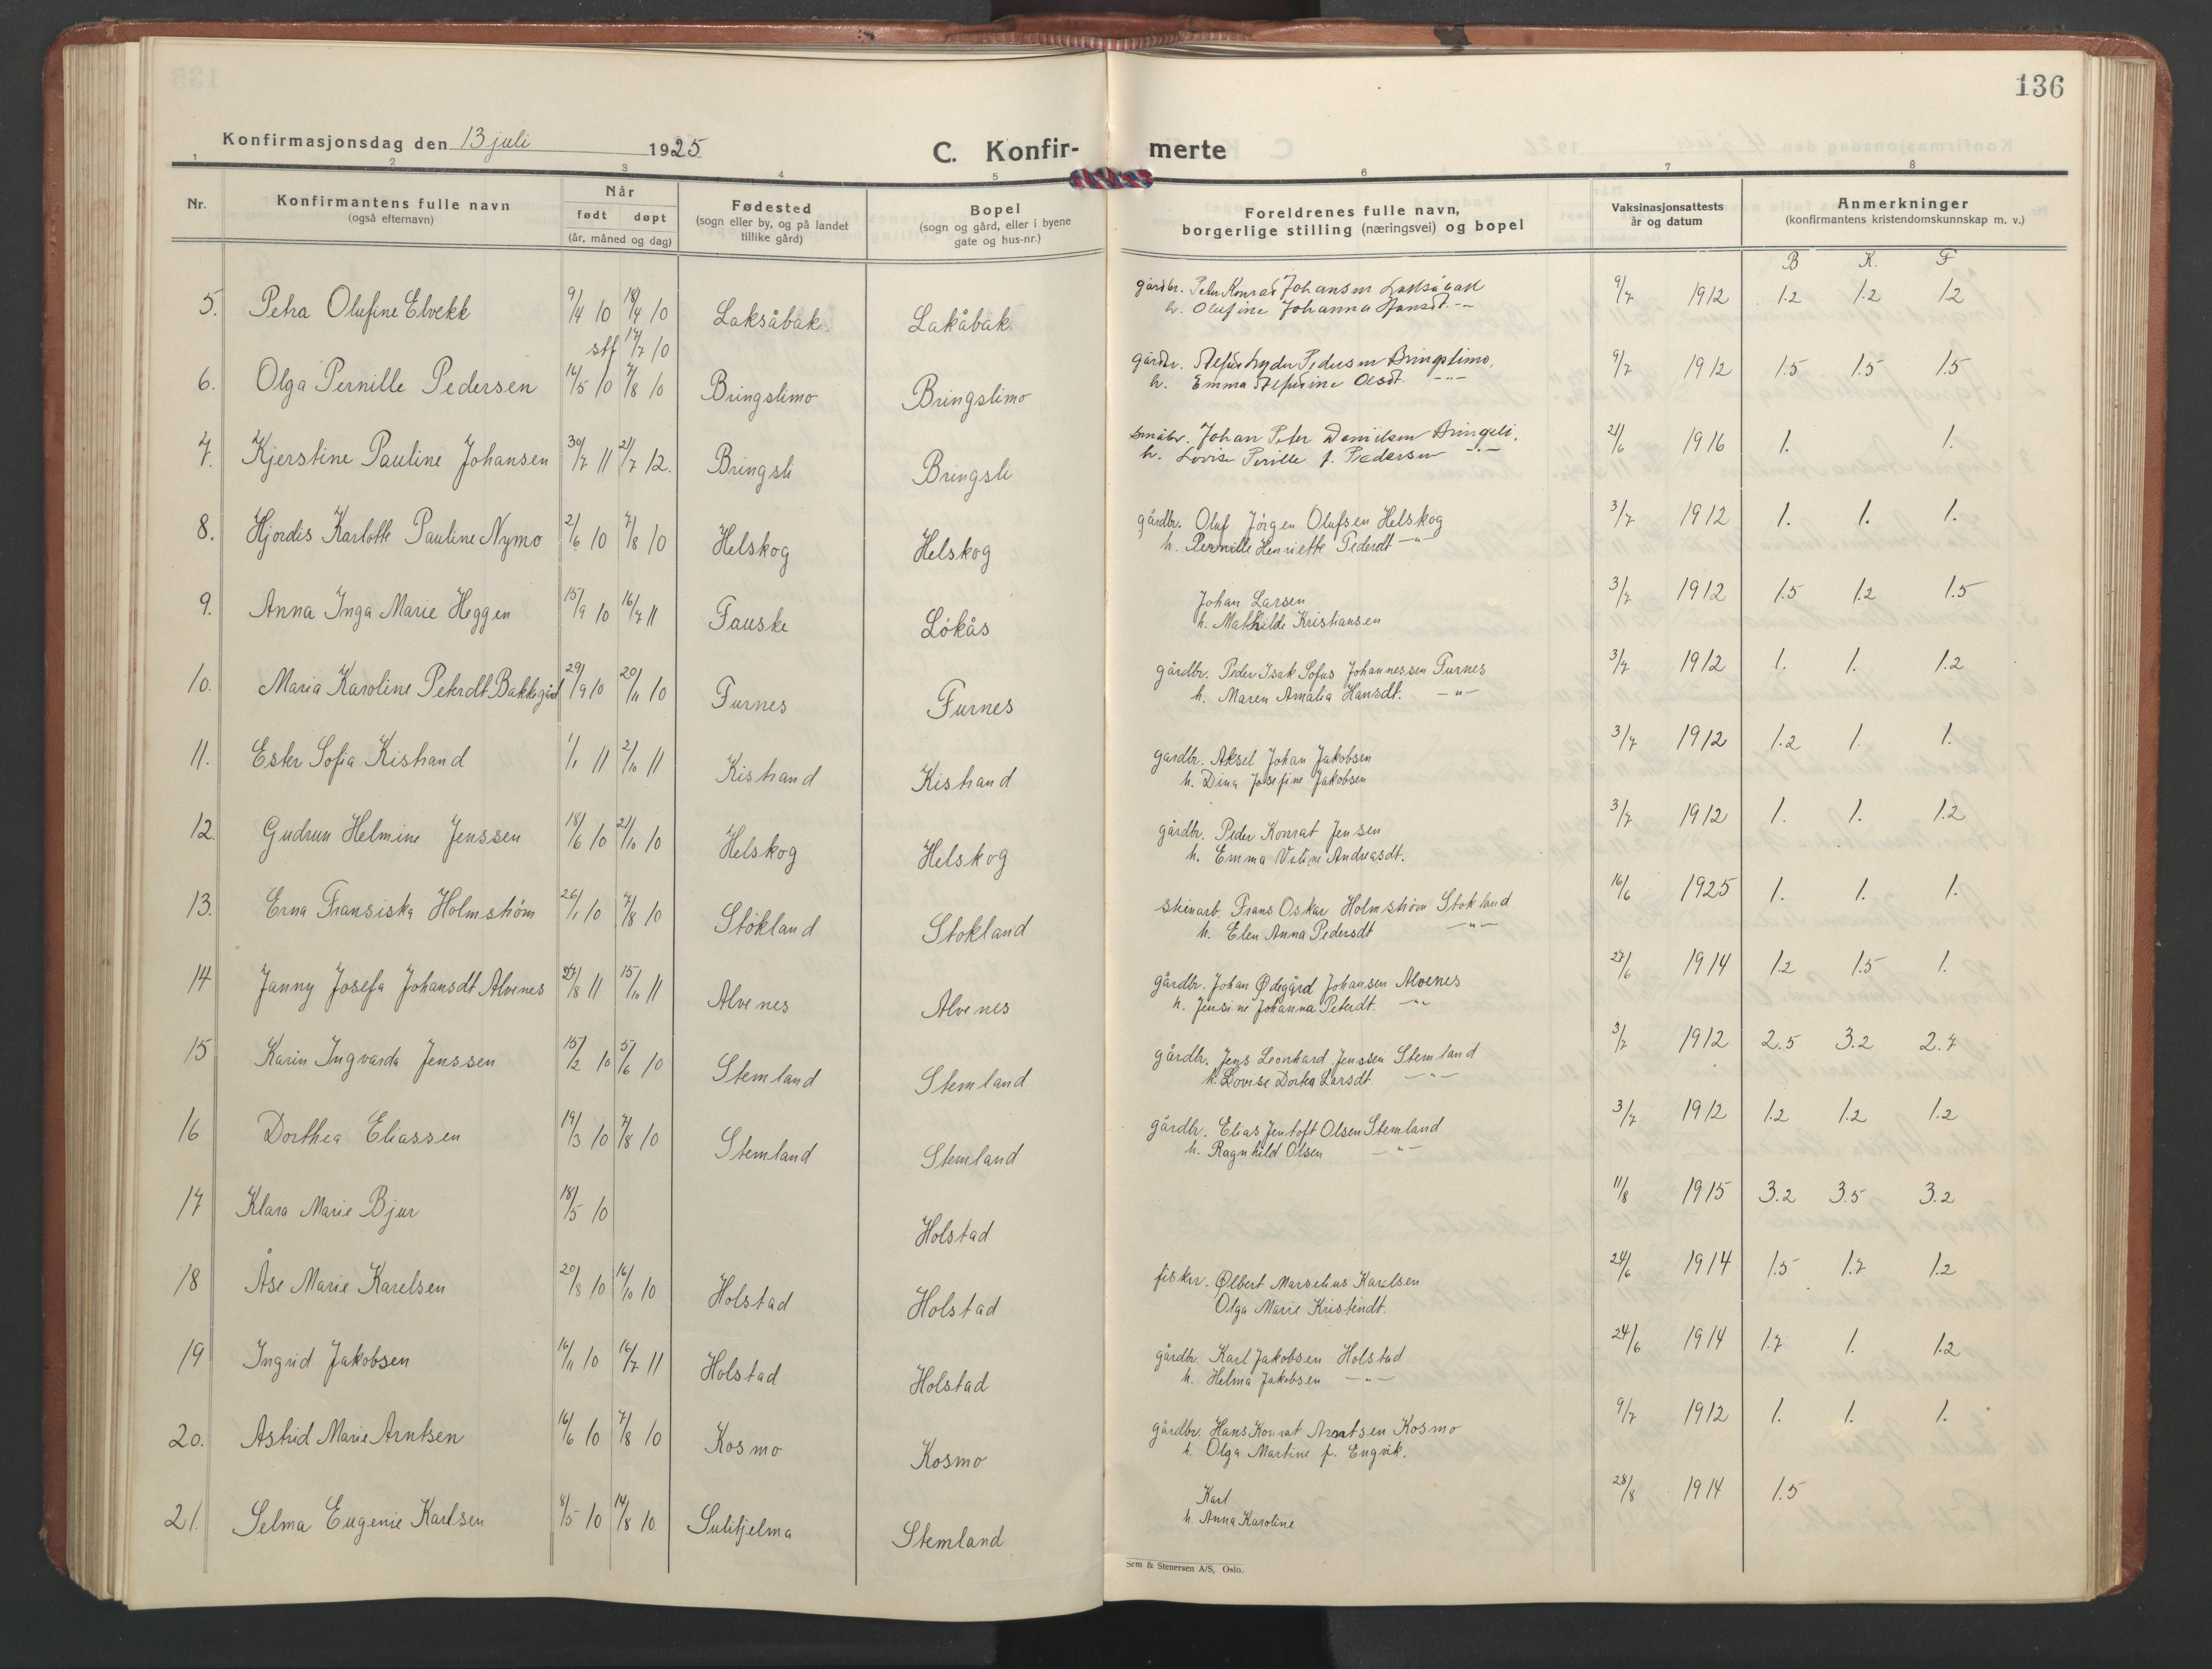 136
Konfirmasjonsdag den 13 juli 1925
C. Konfir- merte
1 2 3 4 5 6 7 8
Nr. Konfirmantens fulle navn (også efternavn) Når født døpt (år, måned og dag) Fødested (sogn eller by, og på landet tillike gård) Bopel (sogn og gård, eller i byene gate og hus-nr.) Foreldrenes fulle navn, borgerlige stilling (næringsvei) og bopel Vaksinasjonsattests år og datum Anmerkninger (konfirmantens kristendomskunnskap m. v.)
B K. F
5. Petra Olufine Elvekk 9/4 10 18/4 10 Laksåbak Lakåbak gårdbr. Peder Konrad Johansen Laksåbak 9/7 1912 1.2 1.2 1.2
stf 17/7 10 h. Olufine Johanna Hansdt. -"-
6. Olga Pernille Pedersen 16/5 10 7/8 10 Bringslimo Bringslimo gårdbr. Pedersen Bringslimo, 9/7 1912 1.5 1.5 1.5
h. Emma Olsdt. -"-
7. Kjerstine Pauline Johansen 30/7 11 21/7 12. Bringsli Bringsli småbr. Johan Peter Danielsen Bringsli. 21/6 1916 1. 1.
h. Lovise Perille f. Pedersen -"-
8. Hjordis Karlotte Pauline Nymo 2/6 10 7/8 10 Helskog Helskog gårdbr. Oluf Jörgen Olufsen Helskog 3/7 1912 1. 1. 1.
h. Pernille Henriette Pedersdt -"-
9. Anna Inga Marie Heggen 15/9 10 16/7 11 Fauske Lökås Johan Larsen 3/7 1912 1.5 1.2 1.5
h. Mathilde Kristiansen
10. Maria Karoline Petersdt Bakkegård 29/9 10 20/11 10 Furnes Furnes gårdbr. Peder Isak Sofus Johannessen Furnes 3/7 1912 1. 1. 1.2
h. Maren Amalia Hansdt. -"-
11. Ester Sofia Kistrand 1/1 11 2/10 11 Kistrand Kistrand gårdbr. Aksel Johan Jakobsen 3/7 1912 1.2 1. 1.
h. Dina Josefine Jakobsen
12. Gudrun Helmine Jenssen 18/6 10 2/10 10 Helskog Helskog gårdbr. Peder Konrat Jensen 3/7 1912 1. 1. 1.2
h. Emma Andreasdt.
13. Erna Fransiska Holmström 26/1 10 7/8 10 Stökland Stokland steinarb. Frans Oskar Holmström Stokland 16/6 1925 1. 1. 1.
h. Elen Anna Pedersdt -"-
14 Janny Josefa Johansdt Alvenes 27/8 11 15/10 11 Alvenes Alvenes gårdbr. Johan Ødegård Johansen Alvenes 27/6 1914 1.2 1.5 1.
h. Jensine Johanna Petersdt. -"-
15 Karin Ingvarda Jenssen 15/2 10 5/6 10 Stemland Stemland gårdbr. Jens Leonhard Jenssen Stemland 3/7 1912 2.5 3.2 2.7
h. Lovise Dortea Larsdt. -"-
16 Dorthea Eliassen 19/3 10 7/8 10 Stemland Stemland gårdbr. Elias Jentoft Olsen Stemland 3/7 1912 1.2 1.2 1.2
h. Ragnhild Olsen -"-
17 Klara Marie Bjur 18/5 10 Holstad 11/8 1915 3.2 3.5 3.2
18 Åse Marie Karelsen 20/8 10 16/10 10 Holstad Holstad fisker. Ølbert Marselius Karelsen 24/6 1914 1.5 1.7 1.2
Olga Marie Kristendt.
19 Ingrid Jakobsen 16/11 10 16/7 11 Holstad Holstad gårdbr. Karl Jakobsen Holstad 24/6 1914 1.7 1. 1.2
h. Helma Jakobsen -"-
20. Astrid Marie Arntsen 16/6 10 7/8 10 Kosmo Kosmo gårdbr. Hans Konrat Arntsen Kosmo 9/7 1912 1. 1. 1.
h. Olga Martine f. Engvik.
21. Selma Eugenie Karlsen 8/5 10 14/8 10 Sulitjelma Stemland Karl 28/8 1914 1.5
h. Anna Karoline
Sem & Stenersen A/S, Oslo.